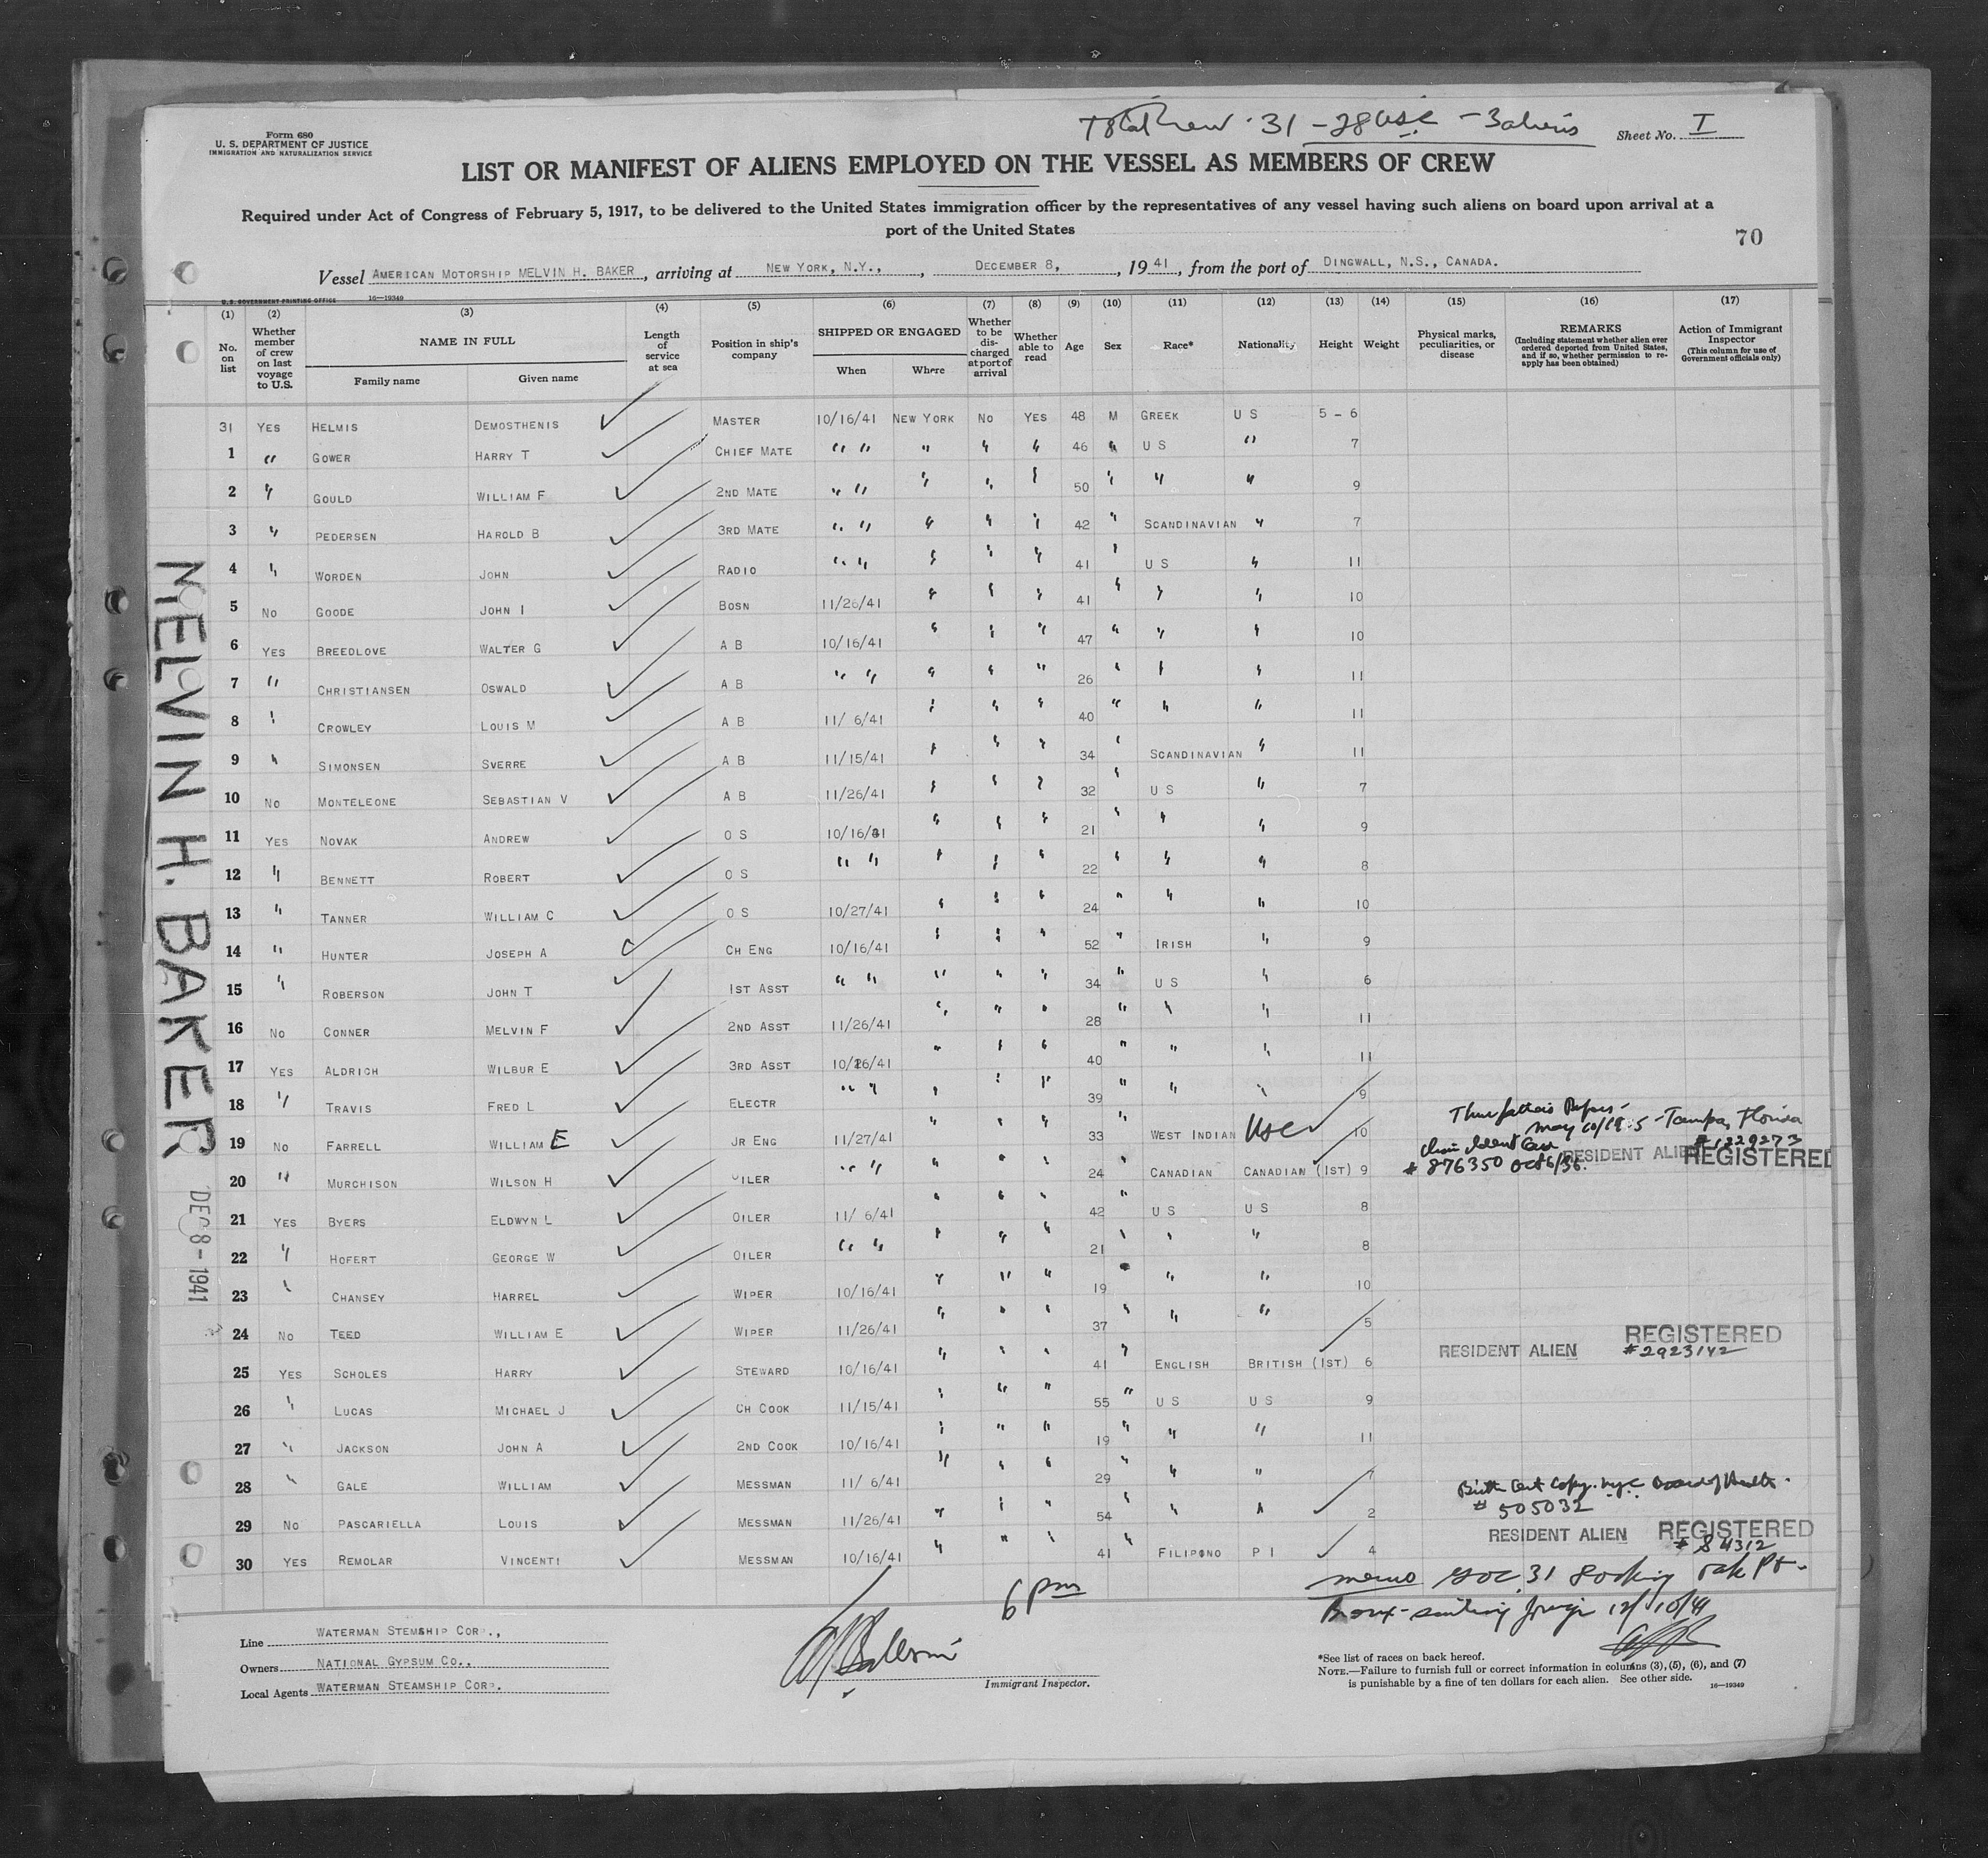 Form 680
U. S. DEPARTMENT OF JUSTICE
IMMIGRATION AND NATURALIZATION SERVICE
31 - 28 USC - 3 aliens
Sheet No. I
LIST OR MANIFEST OF ALIENS EMPLOYED ON THE VESSEL AS MEMBERS OF CREW
Required under Act of Congress of February 5, 1917, to be delivered to the United States immigration officer by the representatives of any vessel having such aliens on board upon arrival at a
port of the United States
70
Vessel AMERICAN MOTORSHIP MELVIN H. BAKER, arriving at NEW YORK, N.Y., , DECEMBER 8, , 1941, from the port of DINGWALL, N.S., CANADA.
U. S. GOVERNMENT PRINTING OFFICE 16—19349
(1) (2) (3) (4) (5) (6) (7) (8) (9) (10) (11) (12) (13) (14) (15) (16) (17)
No. on list
Whether member of crew on last voyage to U.S.
NAME IN FULL
Family name
Given name
Length of service at sea
Position in ship's company
SHIPPED OR ENGAGED
When
Where
Whether to be discharged at port of arrival
Whether able to read
Age
Sex
Race*
Nationality
Height
Weight
Physical marks, peculiarities, or disease
REMARKS
(Including statement whether alien ever ordered deported from United States, and if so, whether permission to reapply has been obtained)
Action of Immigrant Inspector
(This column for use of Government officials only)
31 YES HELMIS DEMOSTHENIS MASTER 10/16/41 NEW YORK NO YES 48 M GREEK U S 5 - 6
1 " GOWER HARRY T CHIEF MATE " " " " " 46 " U S " 7
2 " GOULD WILLIAM F 2ND MATE " " " " " 50 " " " 9
3 " PEDERSEN HAROLD B 3RD MATE " " " " " 42 " SCANDINAVIAN " 7
4 " WORDEN JOHN RADIO " " " " " 41 " U S " 11
5 NO GOODE JOHN I BOSN 11/26/41 " " " 41 " " " 10
6 YES BREEDLOVE WALTER G A B 10/16/41 " " " 47 " " " 10
7 " CHRISTIANSEN OSWALD A B " " " " " 26 " " " 11
8 " CROWLEY LOUIS M A B 11/ 6/41 " " " 40 " " " 11
9 " SIMONSEN SVERRE A B 11/15/41 " " " 34 " SCANDINAVIAN " 11
10 NO MONTELEONE SEBASTIAN V A B 11/26/41 " " " 32 " U S " 7
11 YES NOVAK ANDREW O S 10/16/41 " " " 21 " " " 9
12 " BENNETT ROBERT O S " " " " " 22 " " " 8
13 " TANNER WILLIAM C O S 10/27/41 " " " 24 " " " 10
14 " HUNTER JOSEPH A CH ENG 10/16/41 " " " 52 " IRISH " 9
15 " ROBERSON JOHN T 1ST ASST " " " " " 34 " U S " 6
16 NO CONNER MELVIN F 2ND ASST 11/26/41 " " " 28 " " " 11
17 YES ALDRICH WILBUR E 3RD ASST 10/16/41 " " " 40 " " " 11
18 " TRAVIS FRED L ELECTR " " " " " 39 " " " 9
19 NO FARRELL WILLIAM E JR ENG 11/27/41 " " " 33 " WEST INDIAN USC 10
Tampa, Florida
# 1229273
20 " MURCHISON WILSON H OILER " " " " " 24 " CANADIAN CANADIAN (1ST) 9 # 876350 Oct 6/36. RESIDENT ALIEN REGISTERED
21 YES BYERS ELDWYN L OILER 11/ 6/41 " " " 42 " U S U S 8
22 " HOFERT GEORGE W OILER " " " " " 21 " " " 8
23 " CHANSEY HARREL WIPER 10/16/41 " " " 19 " " " 10
24 NO TEED WILLIAM E WIPER 11/26/41 " " " 37 " " " 5
25 YES SCHOLES HARRY STEWARD 10/16/41 " " " 41 " ENGLISH BRITISH (1ST) 6 RESIDENT ALIEN REGISTERED #2923142
26 " LUCAS MICHAEL J CH COOK 11/15/41 " " " 55 " U S U S 9
27 " JACKSON JOHN A 2ND COOK 10/16/41 " " " 19 " " " 11
28 " GALE WILLIAM MESSMAN 11/ 6/41 " " " 29 " " " 7
Birth Cert Copy. NYC Board of Health.
# 505032
29 NO PASCARIELLA LOUIS MESSMAN 11/26/41 " " " 54 " " " 2
30 YES REMOLAR VINCENTI MESSMAN 10/16/41 " " " 41 " FILIPONO P I 4 RESIDENT ALIEN REGISTERED # 84312
memo 31 Oak Pt.
Bronx - foreign 12/10/41
6 pm
Line WATERMAN STEMSHIP CORP.,
Owners NATIONAL GYPSUM CO.,
Local Agents WATERMAN STEAMSHIP CORP.
Immigrant Inspector.
*See list of races on back hereof.
NOTE.—Failure to furnish full or correct information in columns (3), (5), (6), and (7)
is punishable by a fine of ten dollars for each alien. See other side.
16—19349
MELVIN H. BAKER
DEC 8 - 1941